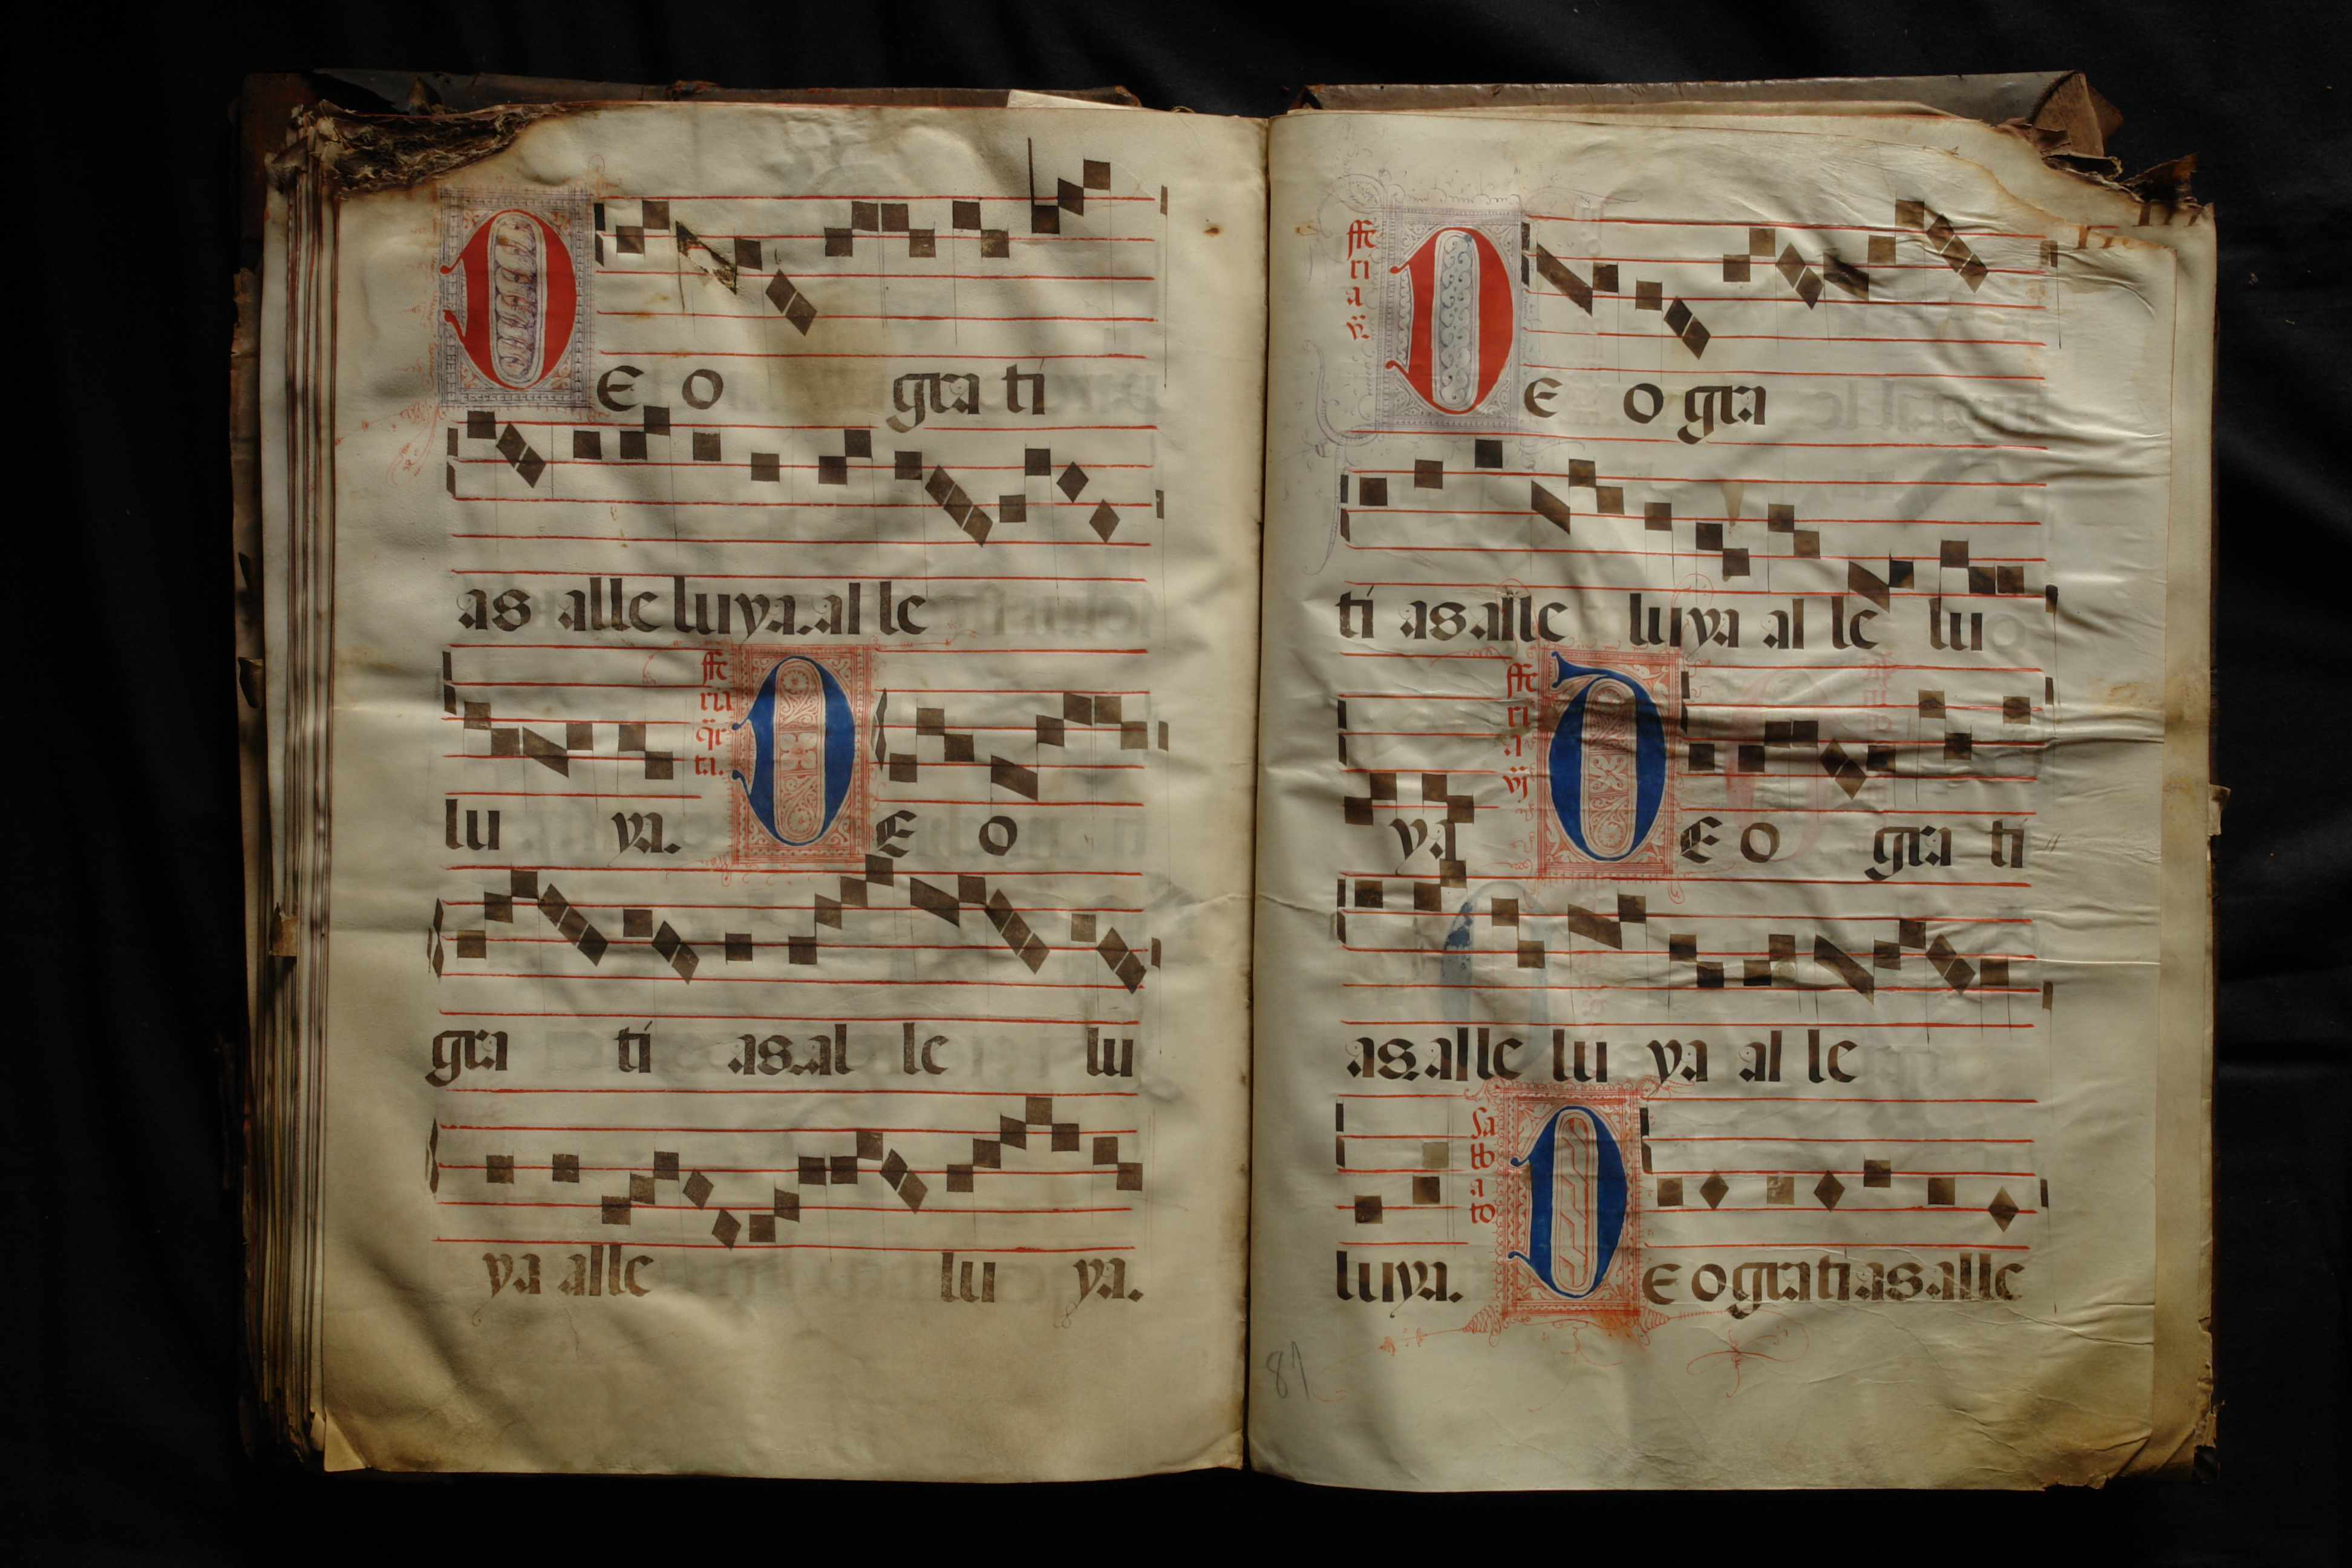 DEO gra ti
as alle luya. al le
lu ya.
ffe
ria
qr
ta.
DEO
gra ti as. al le lu
ya alle lu ya.
ffe
ri
a
v.
DE O gra
ti as. alle luya al le lu
ya
ffe
ri
a
vj
DEO gra ti
as. alle lu ya al le
luya.
Sa
bb
a
to
DEO gratias. alle
87